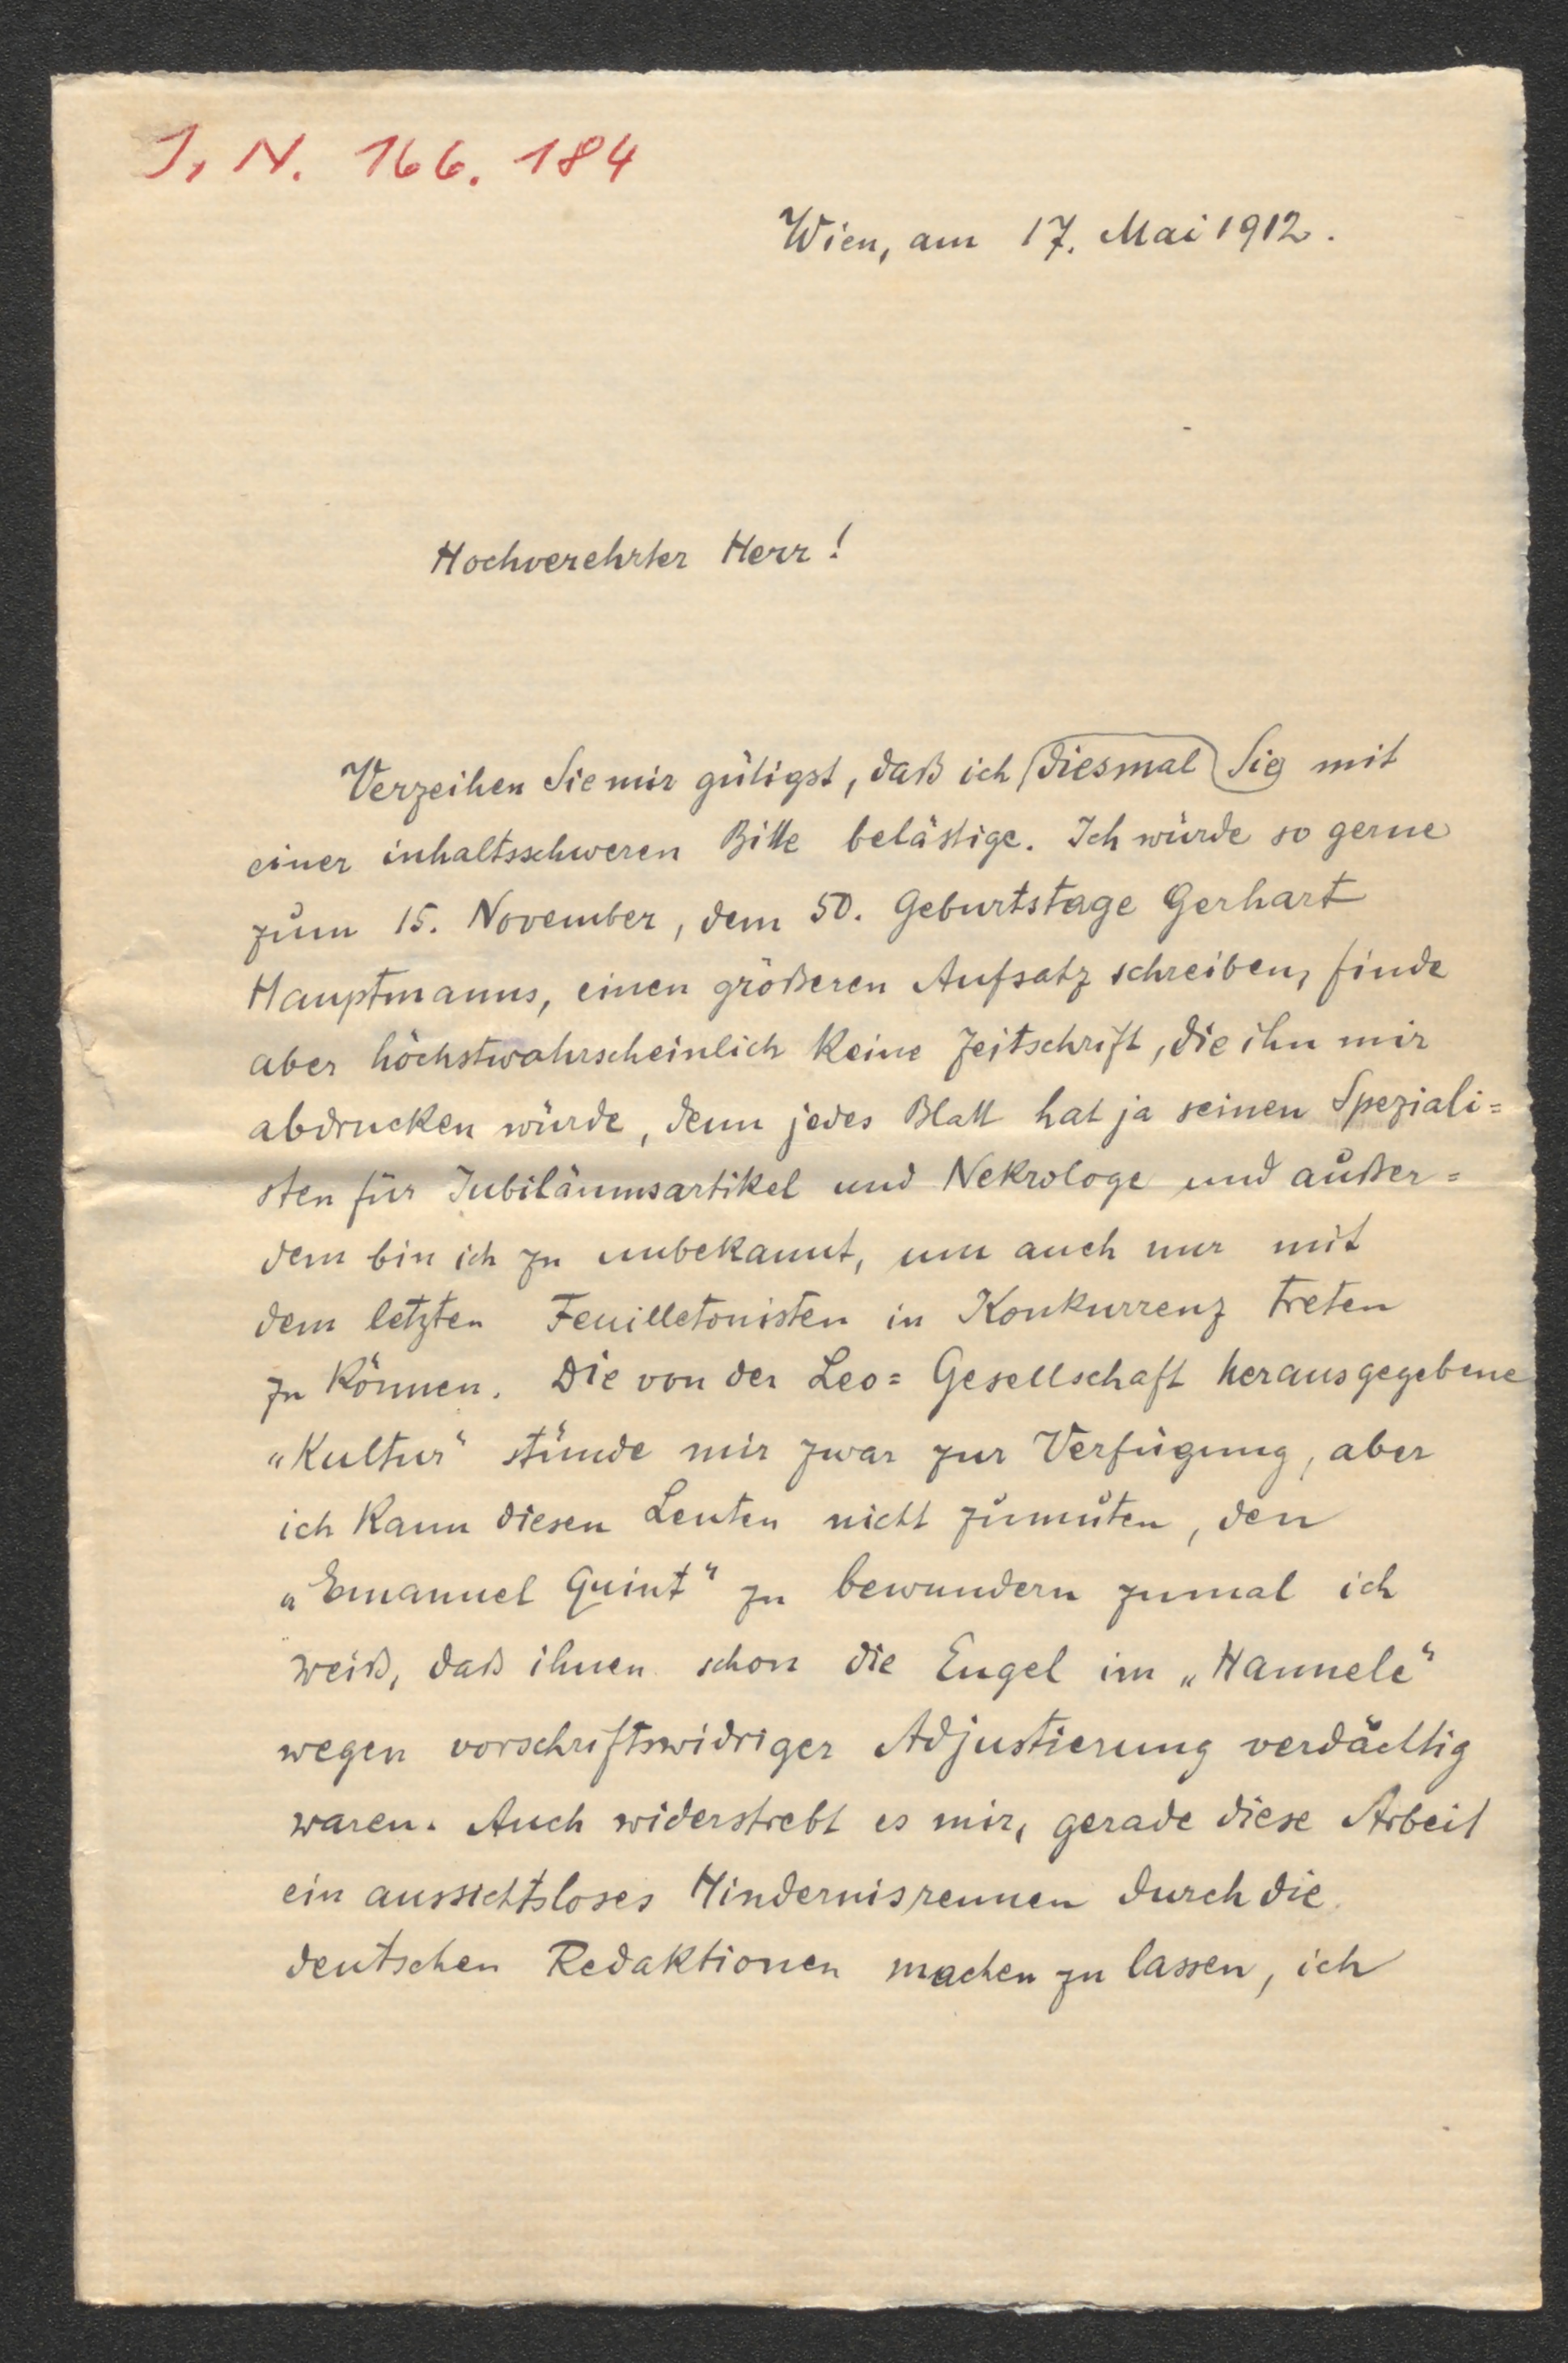 J. N. 166. 184
Wien, am 17. Mai 1912.
Hochverehrter Herr!
Verzeihen Sie mir gütigst, daß ich diesmal Sie mit
einer inhaltsschweren Bitte belästige. Ich würde so gerne
zum 15. November, dem 50. Geburtstage Gerhart
Hauptmanns, einen größeren Aufsatz schreiben, finde
aber höchstwahrscheinlich keine Zeitschrift, die ihn mir
abdrucken würde, denn jedes Blatt hat ja seinen Speziali=
sten für Jubiläumsartikel und Nekrologe und außer=
dem bin ich zu unbekannt, um auch nur mit
dem letzten Feuilletonisten in Konkurrenz treten
zu können. Die von der Leo=Gesellschaft herausgegebene
„Kultur“ stünde mir zwar zur Verfügung, aber
ich kann diesen Leuten nicht zumuten, den
„Emanuel Quint“ zu bewundern zumal ich
weiß, daß ihnen schon die Engel im „Hannele“
wegen vorschriftswidriger Adjustierung verdächtig
waren. Auch widerstrebt es mir, gerade diese Arbeit
ein aussichtsloses Hindernisrennen durch die
deutschen Redaktionen machen zu lassen, ich